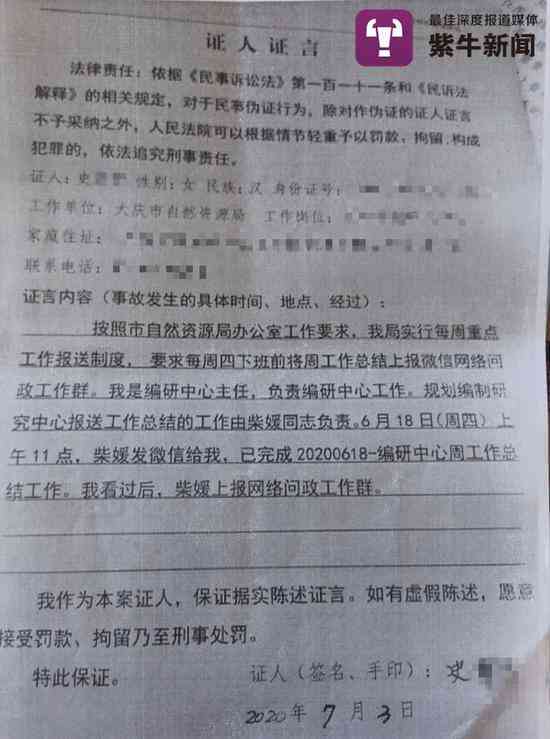 最佳深度报道媒体
紫牛新闻
证人证言
法律责任：依据《民事诉讼法》第一百一十一条和《民诉法
解释》的相关规定，对于民事伪证行为，除对作伪证的证人证言
不予采纳之外，人民法院可以根据情节轻重予以罚款、拘留，构成
犯罪的，依法追究刑事责任。
证人：史 性别：女 民族：汉 身份证号：
工作单位：大庆市自然资源局 工作岗位：
家庭住址：
联系电话：
证言内容（事故发生的具体时间、地点、经过）：
按照市自然资源局办公室工作要求，我局实行每周重点
工作报送制度，要求每周四下班前将周工作总结上报微信网络问
政工作群。我是编研中心主任，负责编研中心工作。规划编制研
究中心报送工作总结的工作由柴媛同志负责。6月18日(周四)上
午11点，柴媛发微信给我，已完成20200618-编研中心周工作总
结工作。我看过后，柴媛上报网络问政工作群。
我作为本案证人，保证据实陈述证言。如有虚假陈述，愿意
接受罚款、拘留乃至刑事处罚。
特此保证。
证人（签名、手印）：史
2020年7月3日